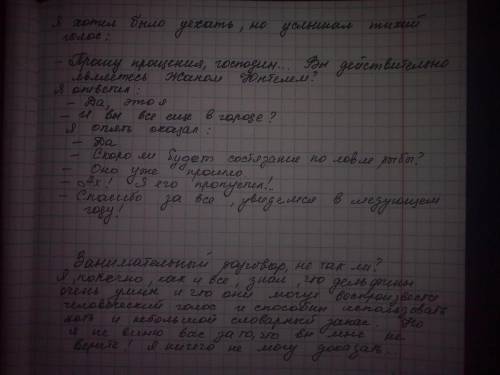 Я хотел было уехать, но услышал тихий
голос:
- Прошу прощения, господин... Вы действительно
являетесь Жаном Юнтелем?
Я ответил:
- Да, это я
- И вы все еще в городе?
Я опять сказал:
- Да
- Скоро ли будет состязание по ловле рыбы?
- Оно уже прошло
- Ах! Я его пропустил!..
- Спасибо за все, увидемся в следующем
году!
Занимательный разговор, не так ли?
Я, конечно, как и все, знал, что дельфины
очень умны и что они могут воспроизвести
человеческий голос и способны использовать
хоть и небольшой словарный запас. Но
я не виню вас за то, что вы мне не
верите! Я ничего не могу доказать.